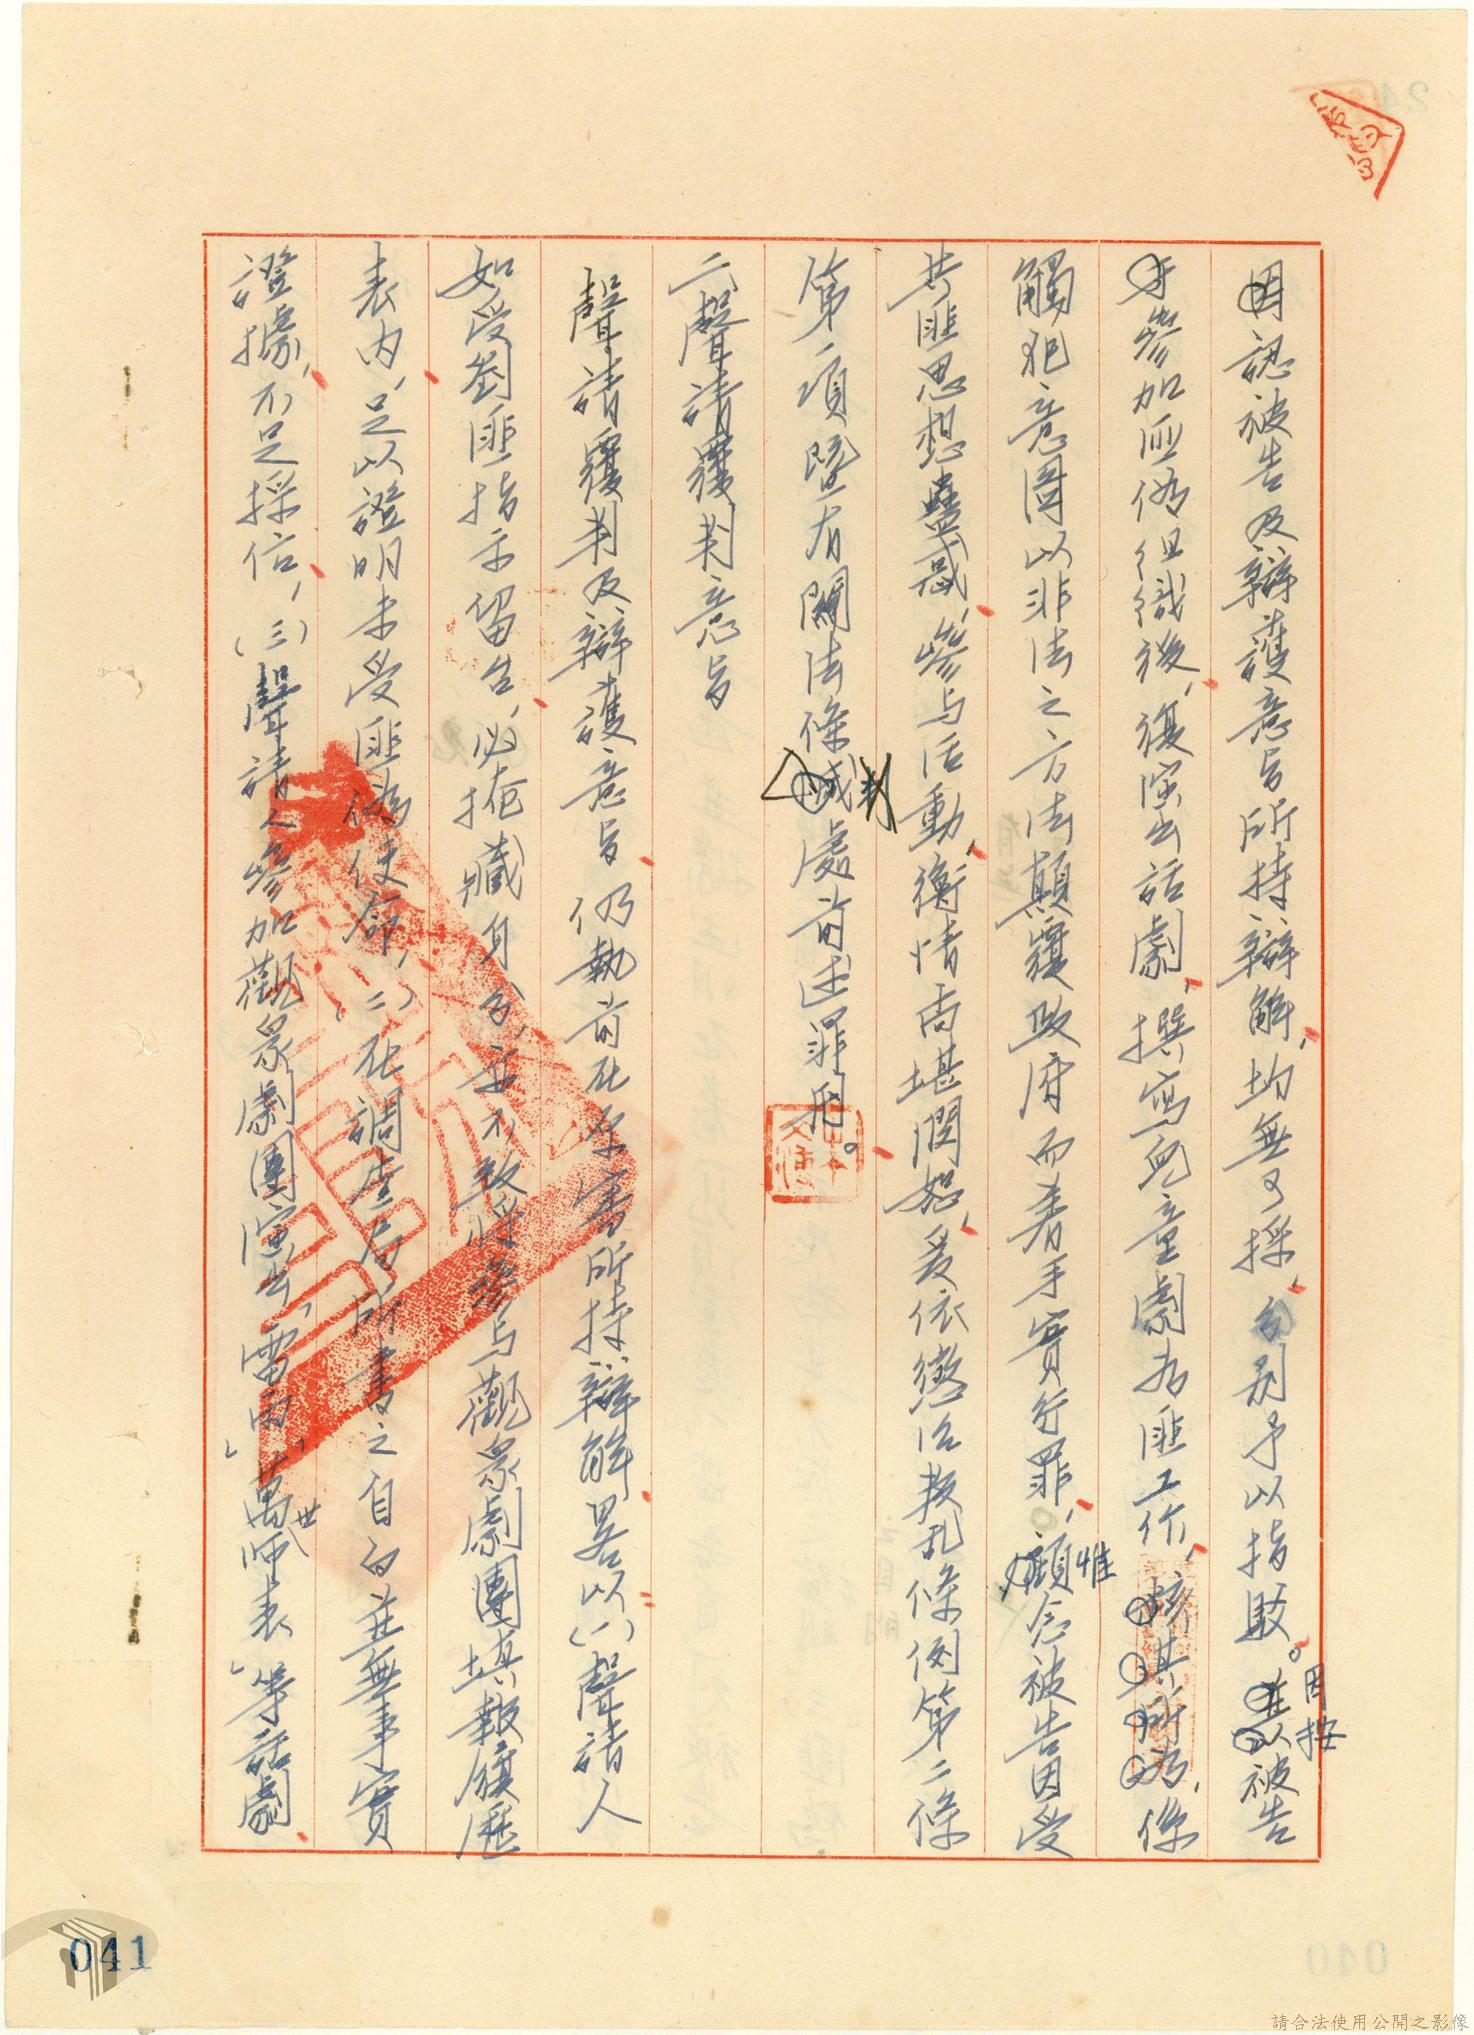 因認被告及辯護意旨所持辯解，均無可採，分別予以指駁。並以被告
因按
於參加匪偽組織後，復演出話劇，撰寫兒童劇為匪工作，核其所為，係
觸犯意圖以非法之方法顛覆政府而著手實行罪，顧念被告因受
惟
共匪思想蠱惑，參与活動，衡情尚堪憫恕，爰依懲治叛亂條例第二條
第一項暨有關法條減處前述罪刑。
判
二、聲請覆判意旨
聲請覆判及辯護意旨，仍執前在原審所持辯解，畧以，(一)聲請人
如受劉匪指示留台，必掩藏身分，並不致將參与觀眾劇團填報履歷
表內，足以證明未受匪偽使命，(二)在調查局所書之自白並無事實
證據，不足採信，(三)聲請人參加觀眾劇團演出「雷雨」「萬世師表」等話劇
041
040
請合法使用公開之影像